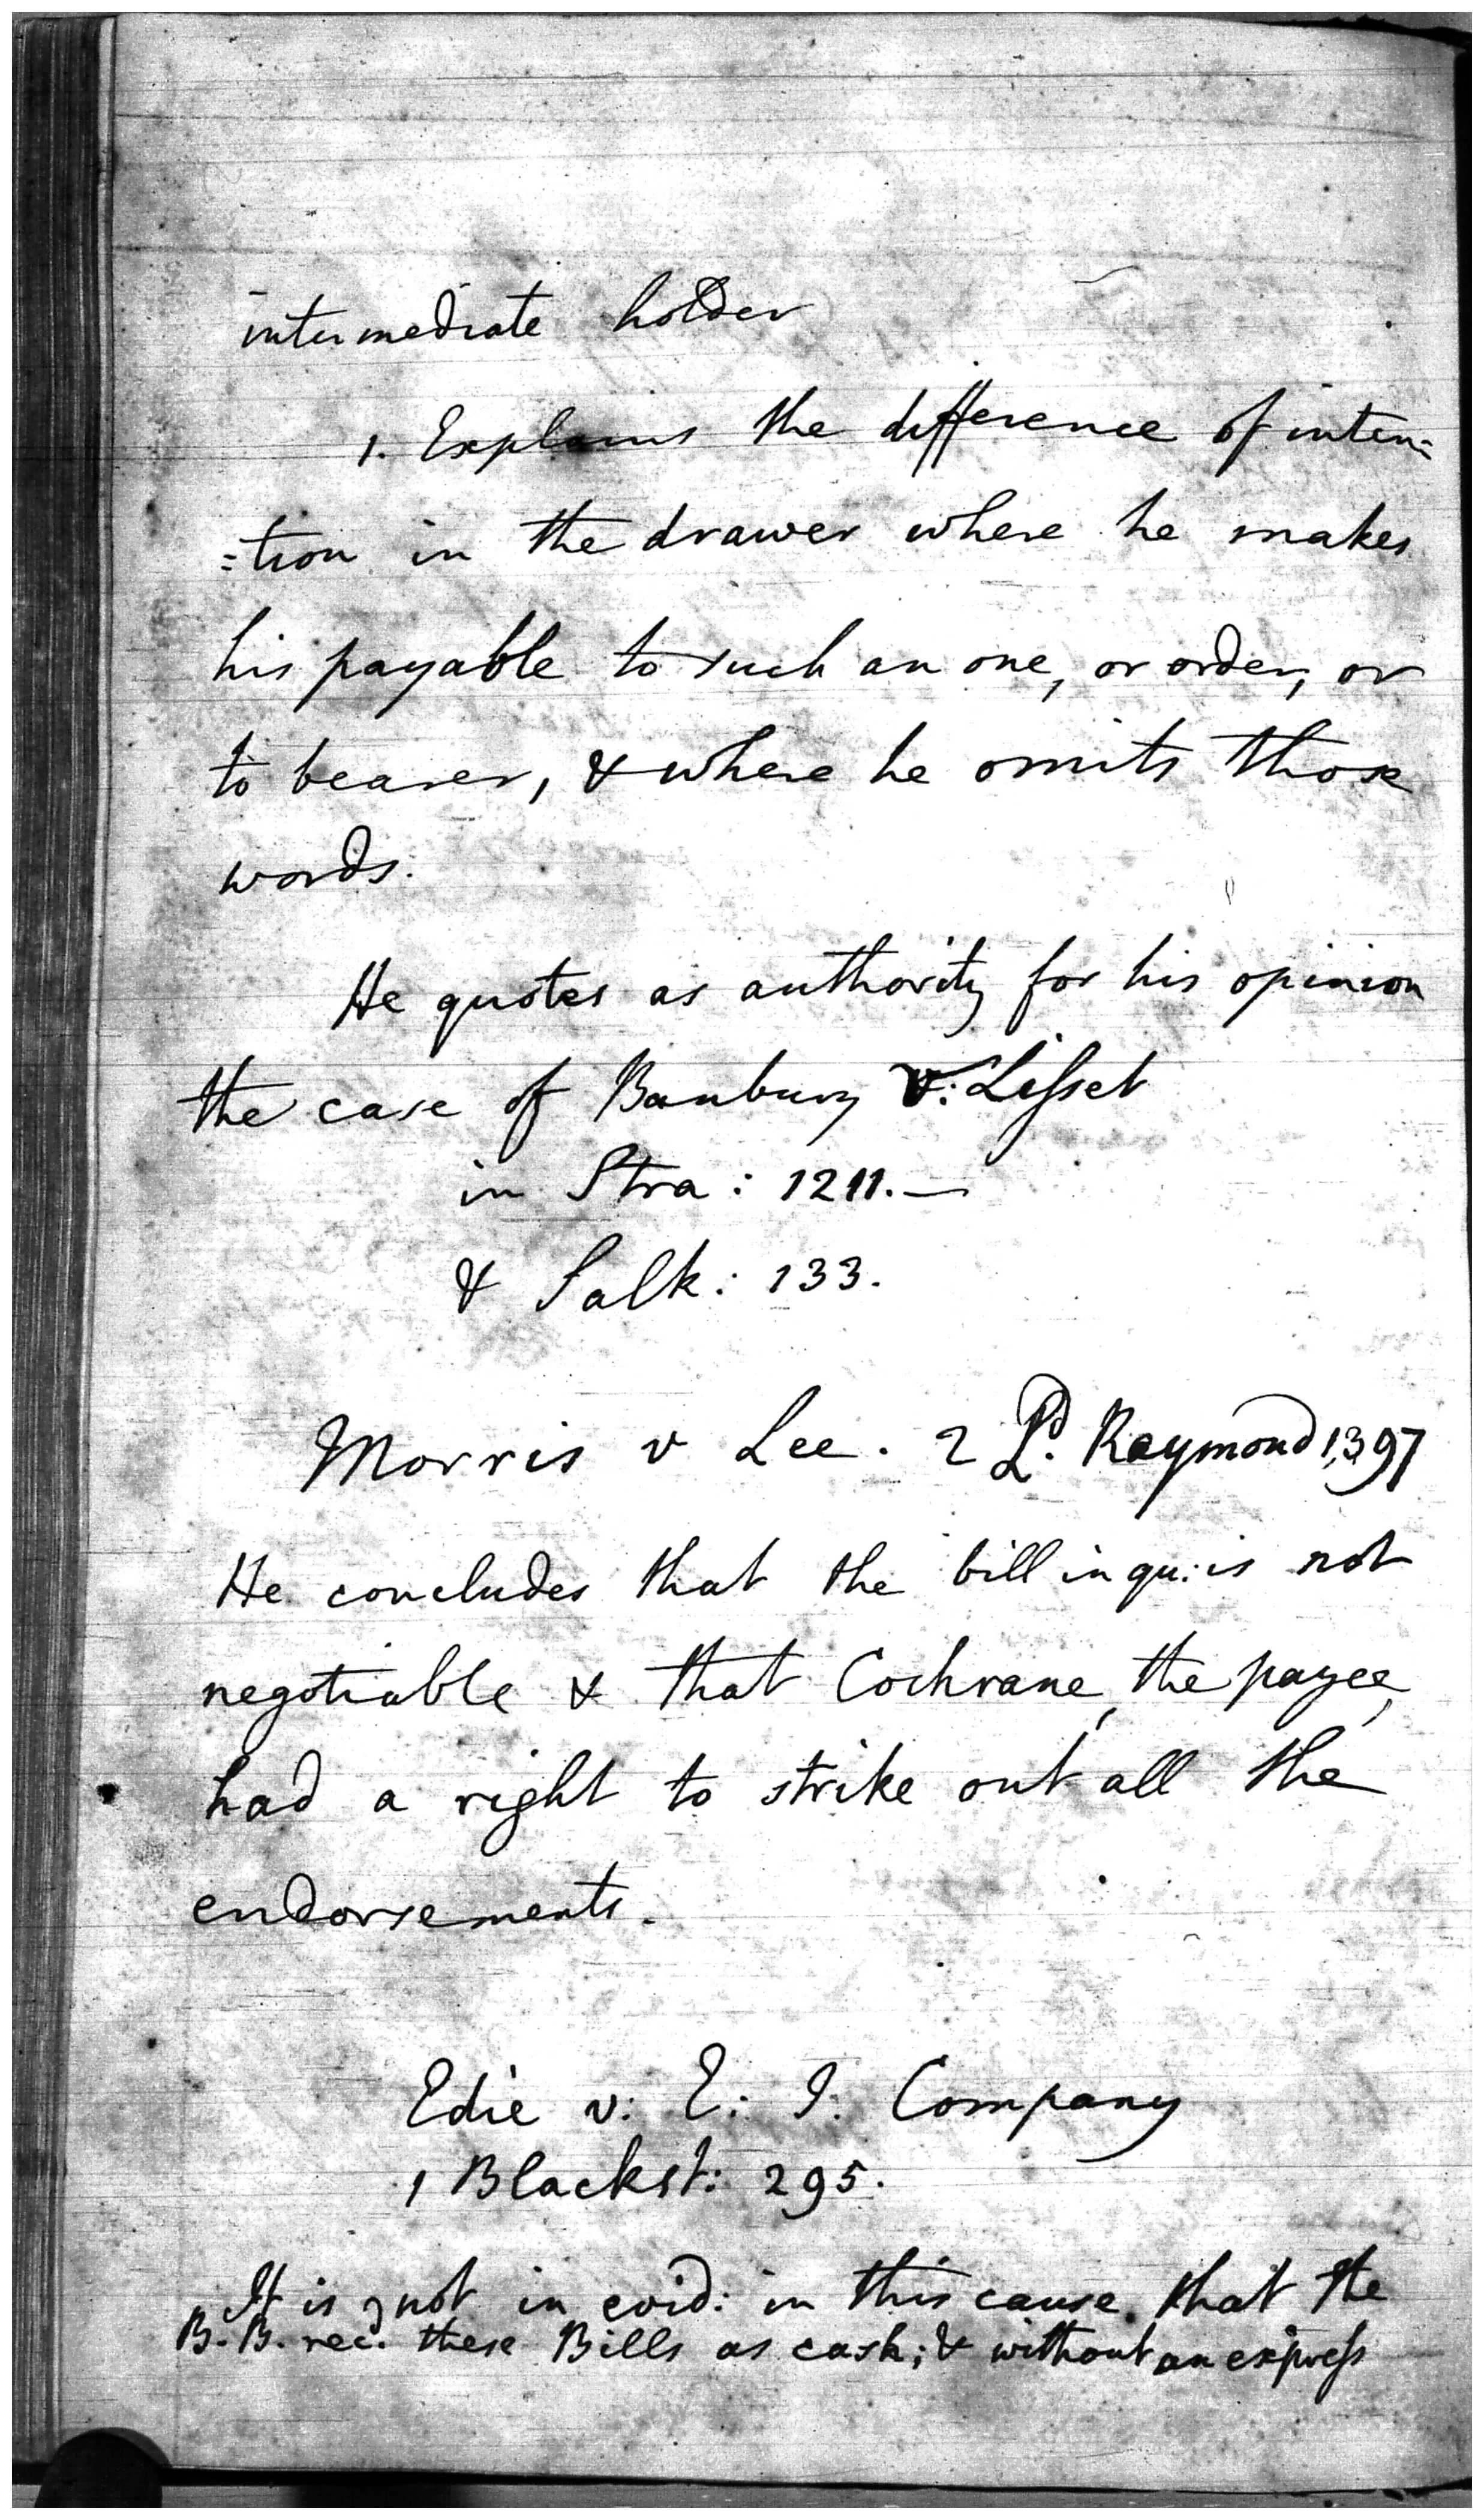 intermediate holder
1. Explains the difference of inten=
=tion in the drawer where he makes
his payable to such an one, or order, or
to bearer, & where he omits those
words.
He quotes as authority for his opinion
the case of Banbury v: Lisset
in Stra: 1211.—
& Salk: 133.
Morris v Lee. 2 Ld. Raymond 1397
He concludes that the bill in qu: is not
negotiable & that Cochrane, the payee,
had a right to strike out all the
endorsements.
Edie v: E: I: Company
1 Blackst: 295.
It is not in evid: in this cause that the
B. B. rec. these Bills as cash; & without an express